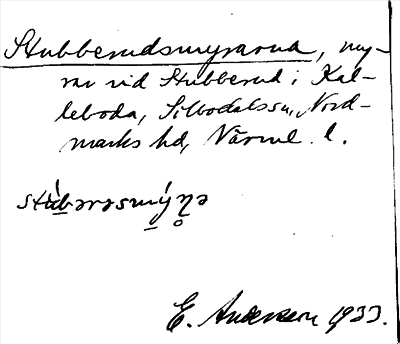 Stubberudsmyrarna, my-
rar vid Stubberud i Kal-
leboda, Silbodalssn, Nord-
marks hd, Värml. l.
stùbərəsmýṇ̊ə
E. Andersson 1933.